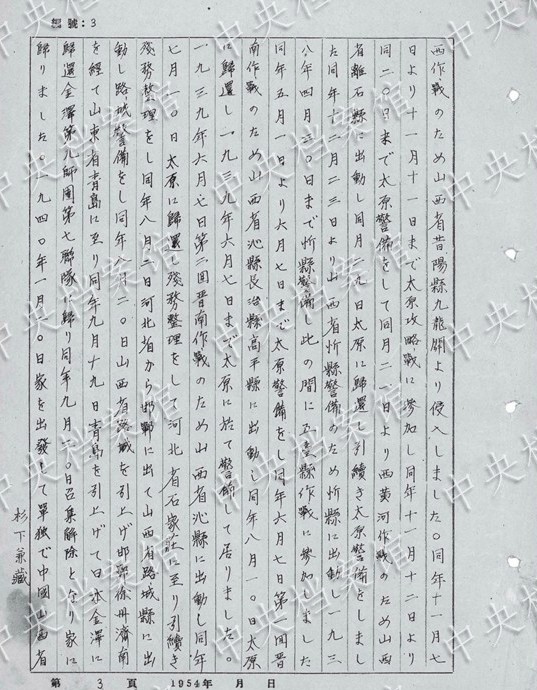 總號：3
西作戰のため山西省昔陽縣九龍關より侵入しました。同年十一月七
日より十一月十一日まで太原攻略戰に參加し同年十一月十二日より
同二〇日まで太原警備をして同月二一日より西黄河作戰のため山西
省離石縣に出動し同月二九日太原に歸還し引續き太原警備をしまし
た同年十二月二三日より山西省忻縣警備のため忻縣に出動し一九三
八年四月三〇日まで忻縣警備し此の間に五臺縣作戰に參加しました
同年五月一日より六月七日まで太原警備をし同年六月七日第一回晋
南作戰のため山西省沁縣長治縣高平縣に出動し同年八月一〇日太原
に歸還し一九三九年六月七日まで太原に於て警備して居りました。
一九三九年六月七日第二回晋南作戰のため山西省沁縣に出動し同年
七月一〇日太原に歸還し殘務整理をして河北省石家莊に至り引續き
殘務整理をし同年八月二日河北省から邯鄲に出て山西省路城縣に出
動し路城警備をし同年八月二〇日山西省路城を引上げ邯鄲徐州濟南
を經て山東省青島に至り同年九月十九日青島を引上げて日本金澤に
歸還金澤第九師團第七聯隊に歸り同年九月二〇日召集解除となり家に
歸りました。一九四〇年一月一〇日家を出發して單獨で中國山西省
杉下兼藏
第 3 頁 1954年 月 日
中央档案馆